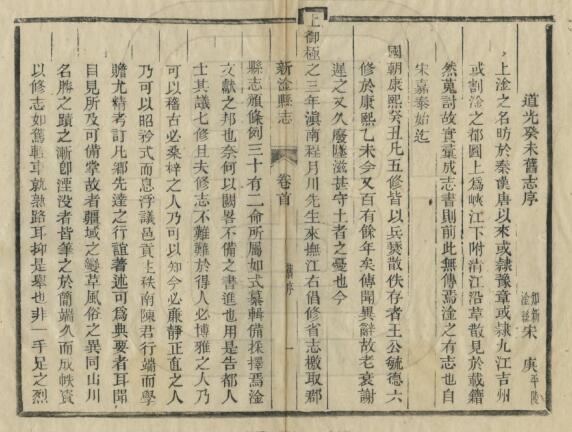 道光癸未舊志序
知新淦縣宋庚平陵
上淦之名昉於秦漢唐以來或隸豫章或隸九江吉州
或割淦之都圖上爲峽江下附淸江沿革散見於載籍
然蒐討故實彙成志書則前此無傳焉淦之有志也自
宋嘉泰始迄
國朝康熙癸丑凡五修皆以兵燹散佚存者王公毓德六
修於康熙乙未今又百有餘年矣傳聞異辭故老衰謝
遲之又久廢墜滋甚守土者之憂也今
上御極之三年滇南程月川先生來撫江右倡修省志檄取郡
新淦縣志
卷首
舊序
一
縣志頒條例三十有二俞所屬如式纂輯備採擇焉淦
文獻之邦也奈何以闕畧不備之書進也用是告都人
士其議七修且夫修志不難難於得人必博雅之人乃
可以稽古必桑梓之人乃可以知今必廉靜正直之人
乃可以昭矜式而息浮議邑貢上秩南陳君行端而學
贍尤精考訂凡鄕先達之行誼著述可爲典要者耳聞
目見所及可備掌故者疆域之變草風俗之異同山川
名勝之蹟之漸卽湮没者皆筆之於簡端久而成帙袠
以修志如舊輕車就熟路耳抑是舉也非一手足之烈